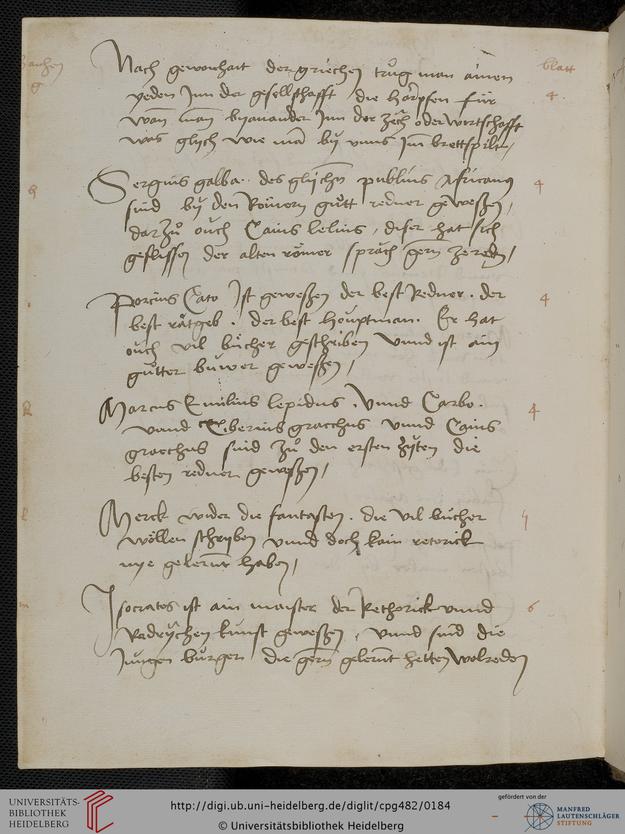 Nach gewonhait der griechen trůg man ainem
yeden Inn der gesellschafft die harpfen für
wan man byainander Inn der zech oder wirtschafft
was glych wie man by vnns Im brettspilt /
Sergius galba . des glychen publius Africanus
sind by den Römern gůtt redner geweßen /
dar zů ouch Caius lelius / diser hat sich
geflissen der alten römer sprach gern zereden /
Porcius Cato Ist geweßen der best Redner . der
best rätgeb . der best houptman . Er hat
ouch vil bücher geschriben vnnd ist ain
gůtter buwer geweßen /
Marcus Emilius lepidus . Vnnd Carbo .
vnnd Tiberius gracchus vnnd Caius
gracchus sind zů den ersten zyten die
besten redner geweßen /
Merck wider die fantasten . die vil bücher
wöllen schryben vnnd doch kain retorick
nye gelernt haben /
Isocrates ist ain maister der Rethorick vnnd
Redrychen kunst geweßen / vnnd sind die
Jungen burger die gern gelernt hetten wolreden
blatt
4
4
4
4
4
6
UNIVERSITÄTS-
BIBLIOTHEK
HEIDELBERG
http://digi.ub.uni-heidelberg.de/diglit/cpg482/0184
© Universitätsbibliothek Heidelberg
gefördert von der
MANFRED
LAUTENSCHLÄGER
STIFTUNG